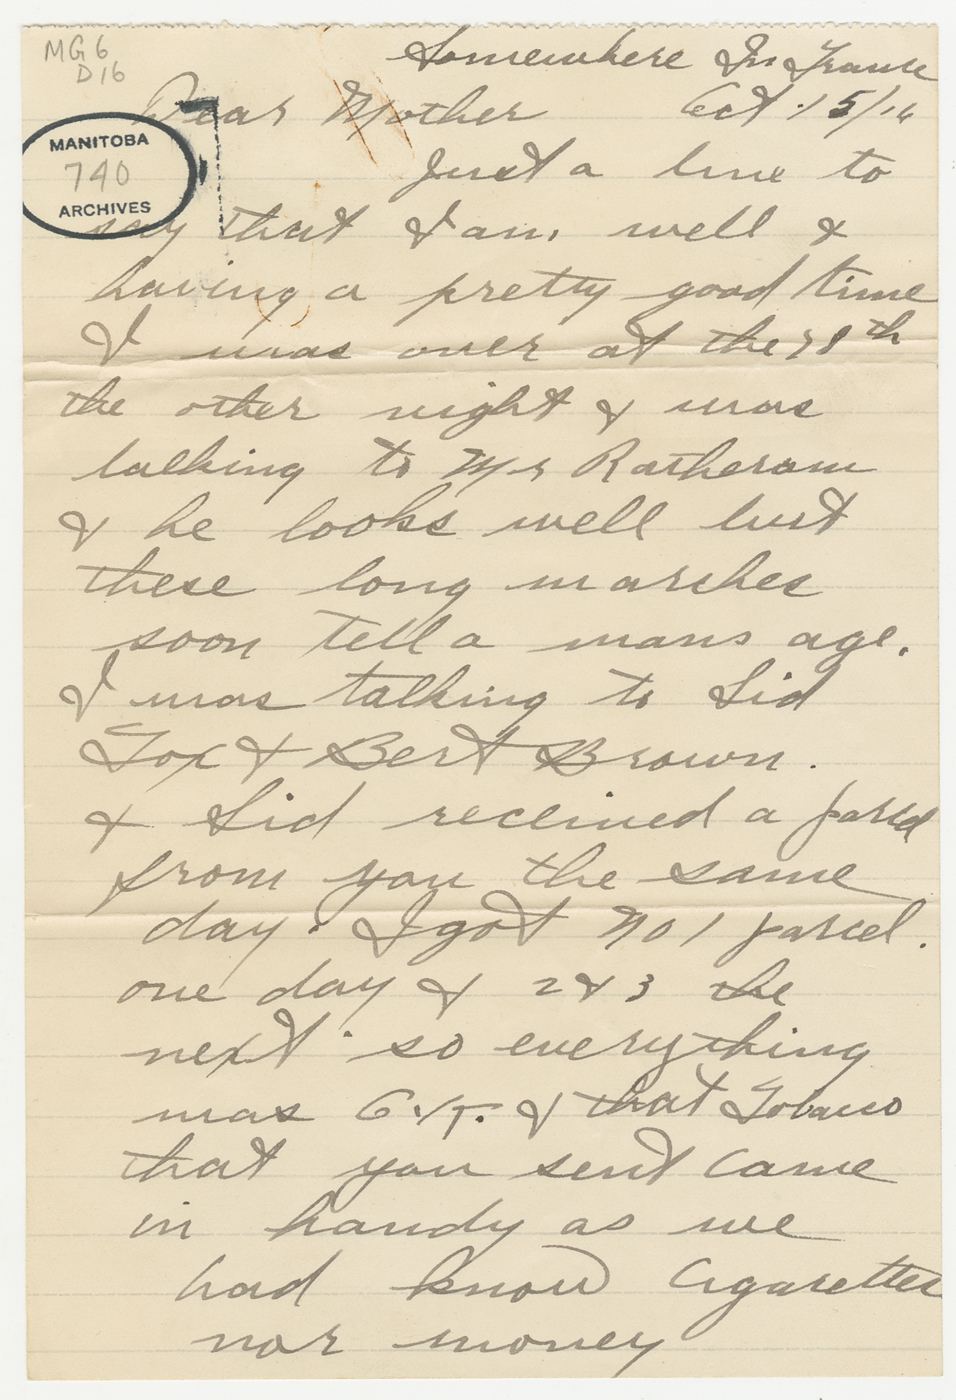 MG6
D16
MANITOBA
740
ARCHIVES
Somewhere In France
Dear Mother Oct 15/16
Just a line to
say that I am, well &
having a pretty good time
I was over at the 78th
the other night & was
talking to Mr Ratheram
& he looks well but
these long marches
soon tell a mans age.
I was talking to Sid
Fox & Bert Brown.
& Sid received a parcel
from you the same
day. I got No 1 parcel.
one day & 2 & 3 the
next. so everything
was O.K. & that Tobacco
that you sent came
in handy as we
had know Cigarettes
nor money